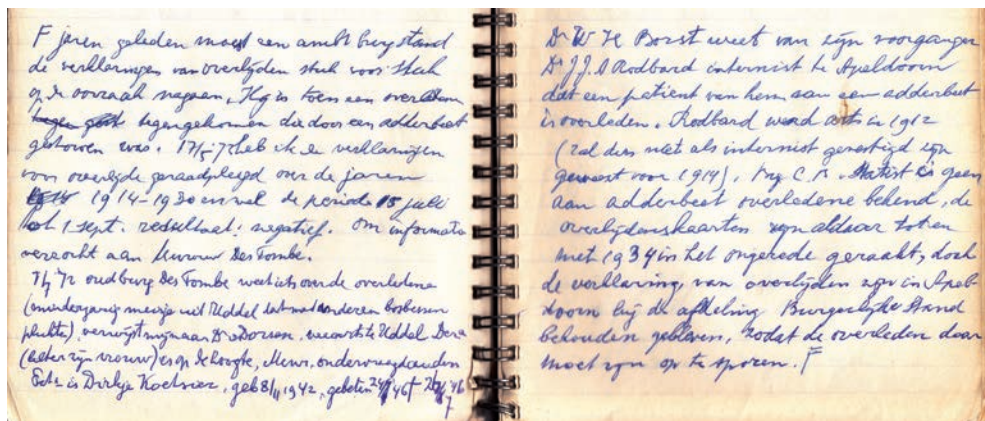 F jaren geleden moest een ambt burg stand
de verklaringen van overlijden stuk voor stuk
op de oorzaak nagaan. Hij is toen een overleden
tegengekomen die door een adderbeet
gestorven was. 17/5 heb ik de verklaringen
voor overlijde geraadpleegd over de jaren
1914-1930 en wel de periode 15 juli
tot 1 sept. resultaat: negatief. Om informatie
verzocht aan Mevrouw Des Tombe.
7/6 72 oud burg Des Tombe weet iets over de overledene
(minderjarig meisje uit Uddel dat met anderen bosbessen
plukte), verwijst mij naar Dr Dorsen, Uddel
(beter zijn vrouw) is op de hoogte, Mevr.
Echt is Dirkje Koetsier, geb 8/11 1942, gebeten 46
Dr W H Borst weet van zijn voorganger
Dr J.J.A Rodbard internist te Apeldoorn
dat een patient van hem aan een adderbeet
is overleden. Rodbard werd arts in 1912
(zal dus niet als internist gevestigd zijn
geweest voor 1914). Bij C.B. Statist is geen
aan adderbeet overledene bekend, de
overlijdenskaarten zijn aldaar tot en
met 1934 in het ongerede geraakt, doch
de verklaring van overlijden zijn in Apel
doorn bij de afdeling Burgerlijke Stand
behouden gebleven, zodat de overleden daar
moet zijn op te sporen. F